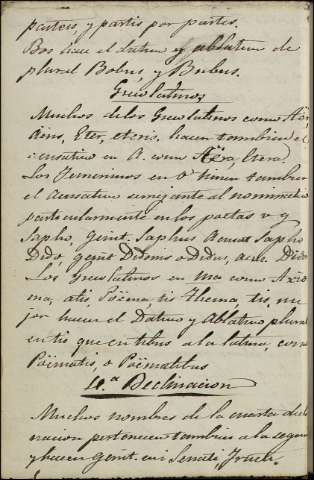 parteis, y partis por partes.
Bos hace el dativo y ablativo de
plural Bobus, y Bubus.
Greolatinos
Muchos delos Greolatinos como Aër,
Aëris, Eter, eteris. hacen tambien el
acusativo en A. como Aëra, Etera.
Los Femeninos en O tienen tambien
el Acusativo semejante al nominativo
particularmente en los poetas v g
Sapho, genit. Saphus Acusat Sapho
Dido, genit Didonis o Didus, acus. Dido
Los Greolatinos en ma como Axio
ma, atis, Poëma, tis Thema, tis, me
jor hacen el Dativo y Ablativo plural
en tis que en tibus a la latina, como
Poëmatis, o Poëmatibus
4.a Declinacion
Muchos nombres de la cuarta decli
nacion pertenecen tambien a la segunda
y hacen Genit. en i Senati, Fructi.